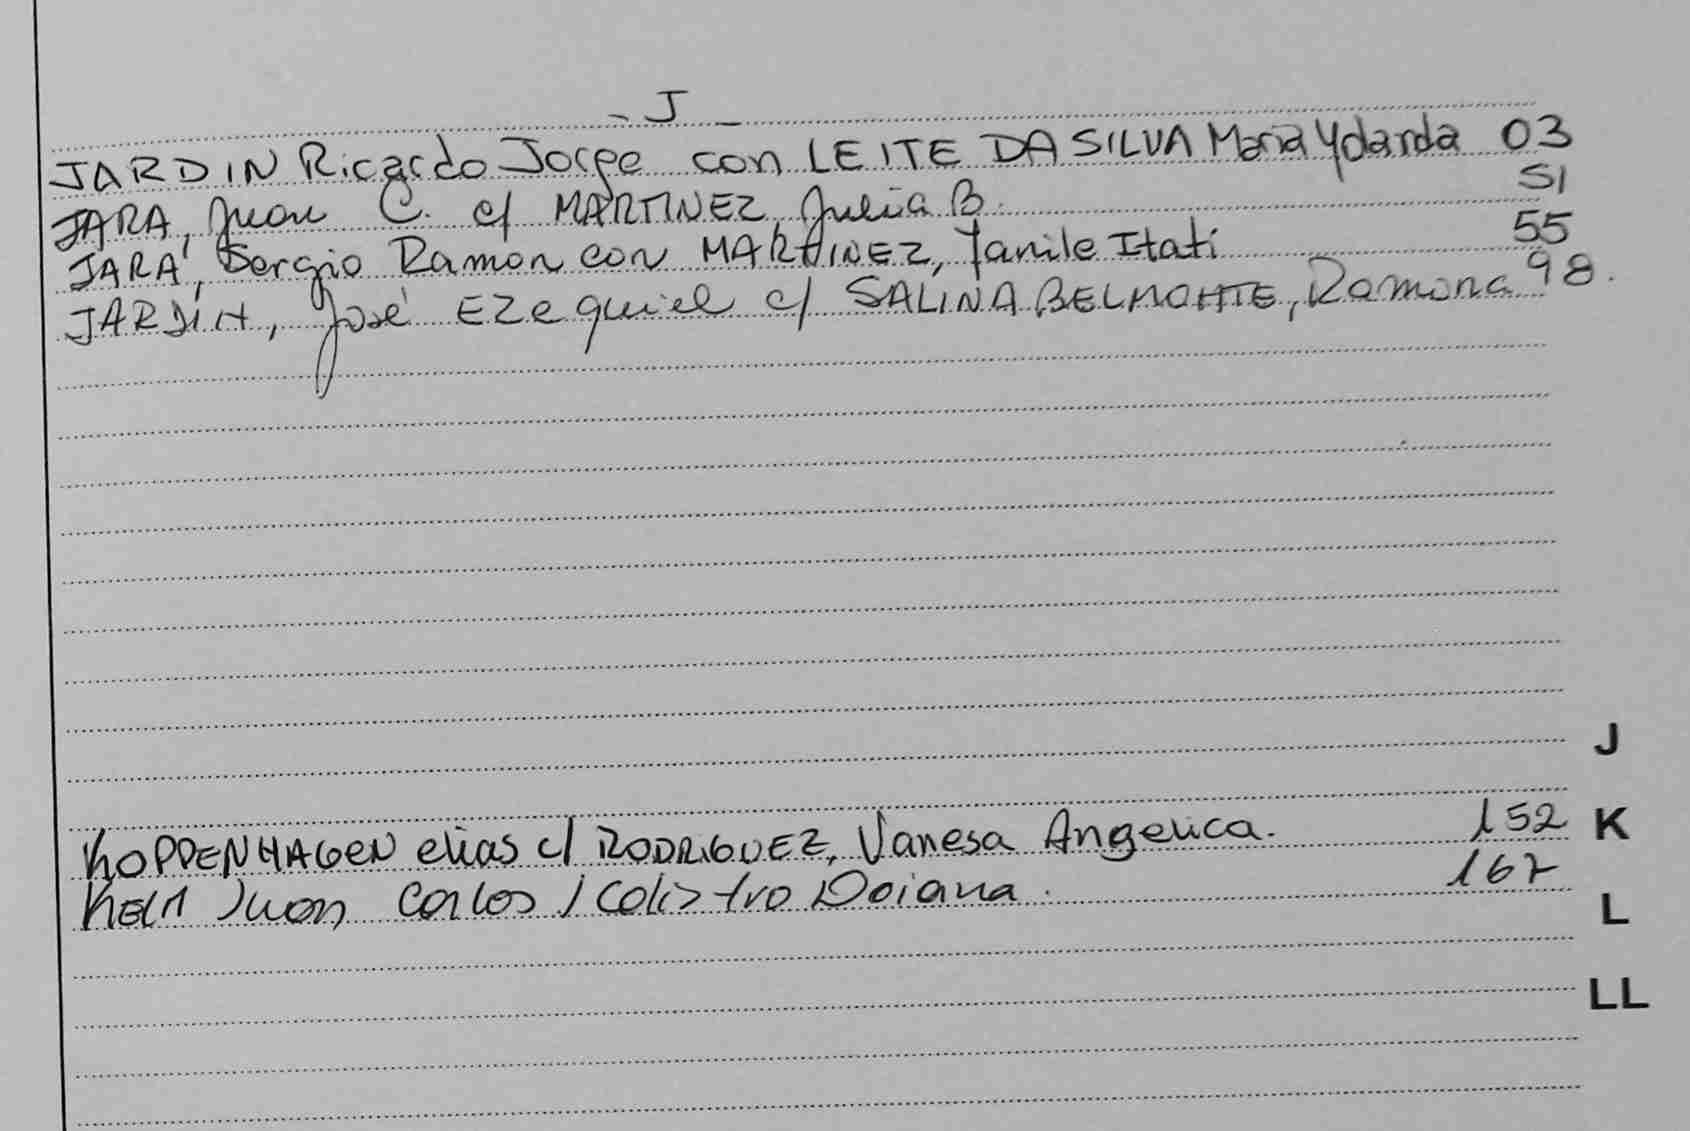 - J -
JARDIN Ricardo Jorge con LEITE DA SILVA Maria Yolanda 03
JARA, Juan C. c/ MARTINEZ, Julia B. 51
JARA, Sergio Ramon con MARTINEZ, Yanile Itatí 55
JARDÍN, José Ezequiel c/ SALINA BELMONTE, Ramona 98.
J
KOPPENHAGEN elias c/ RODRIGUEZ, Vanesa Angelica. 152
K
Juan Carlos / Colistro Daiana. 167
L
LL